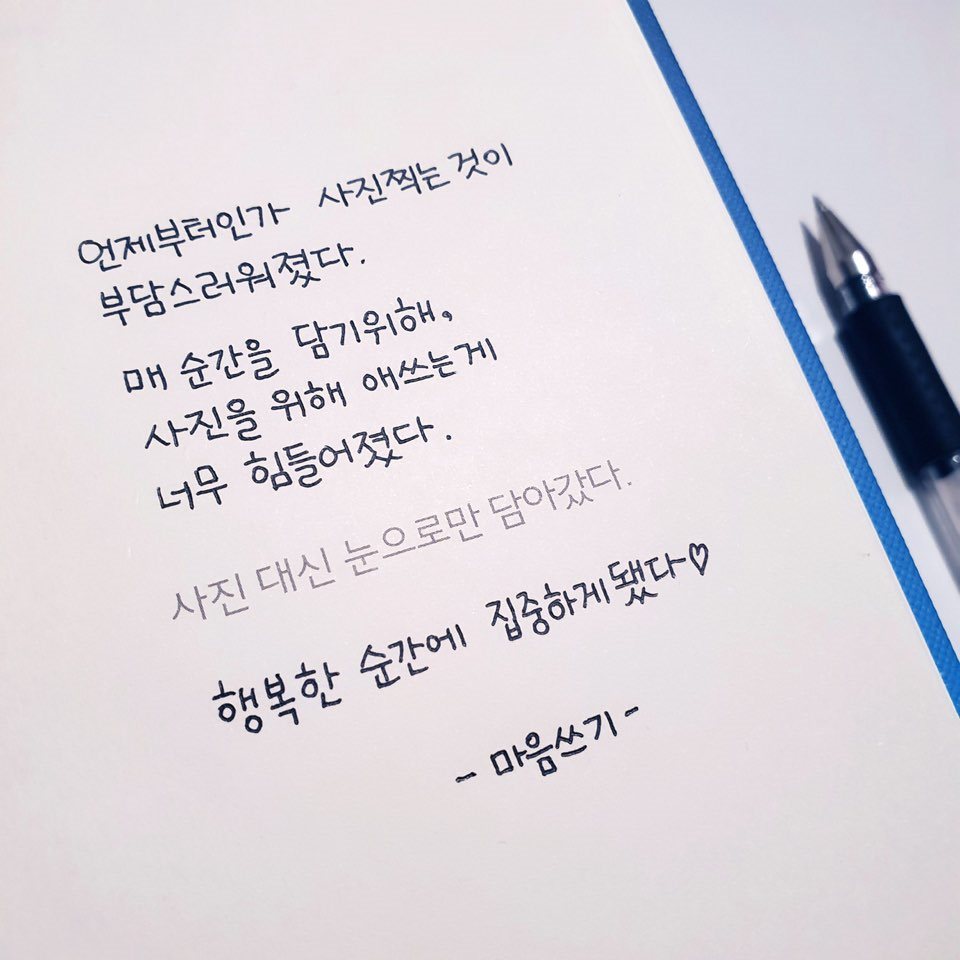 언제부터인가 사진찍는것이
부담스러워졌다.
매 순간을 담기위해,
사진을 위해 애쓰는게
너무 힘들어졌다.
사진 대신 눈으로만 담아갔다.
행복한 순간에 집중하게됐다♡
- 마음쓰기 -